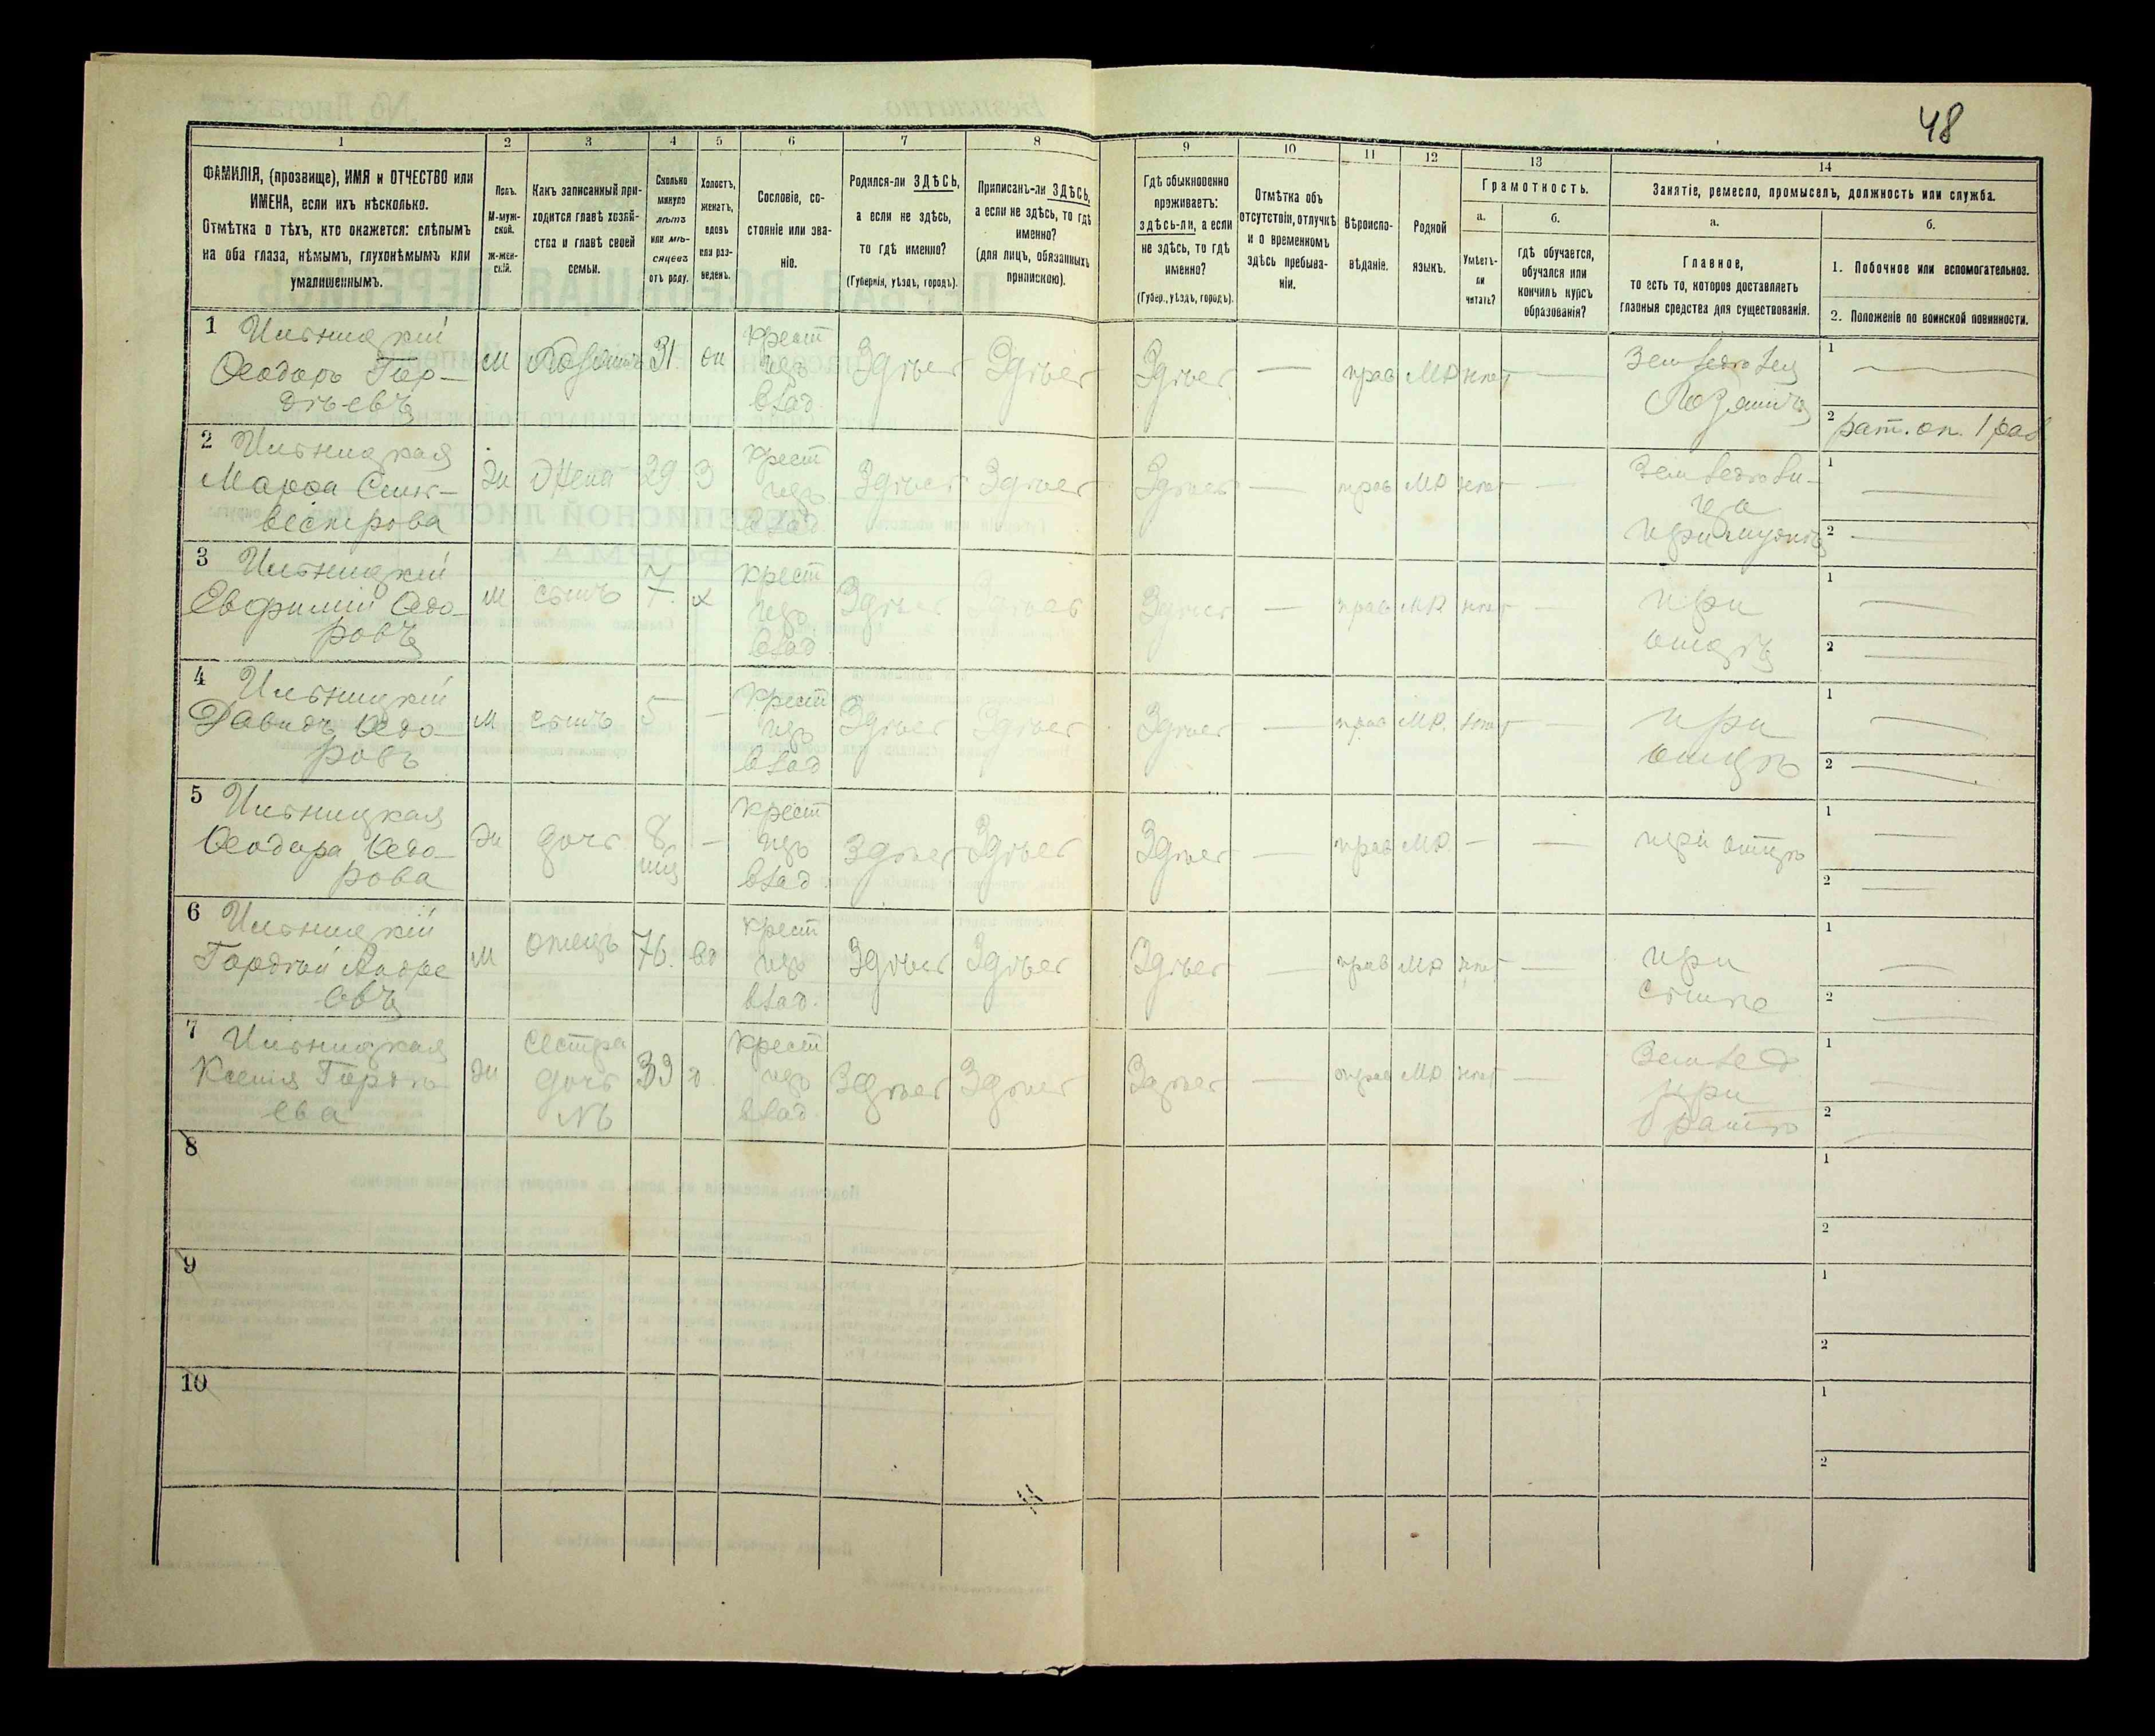 48
1 2 3 4 5 6 7 8 9 10 11 12 13 14
ФАМИЛІЯ, (прозвище), ИМЯ и ОТЧЕСТВО или
ИМЕНА, если ихъ нѣсколько.
Отмѣтка о тѣхъ, кто окажется: слѣпымъ
на оба глаза, нѣмымъ, глухонѣмымъ или
умалишеннымъ.
Полъ.
М-муж-
ской.
Ж-жен-
скій.
Какъ записанный при-
ходится главѣ хозяй-
ства и главѣ своей
семьи.
Сколько
минуло
лѣтъ
или мѣ-
сяцевъ
отъ роду.
Холостъ,
женатъ,
вдовъ
или раз-
веденъ.
Сословіе, со-
стояніе или зва-
ніе.
Родился-ли ЗДѢСЬ,
а если не здѣсь,
то гдѣ именно?
(Губернія, уѣздъ, городъ).
Приписанъ-ли ЗДѢСЬ,
а если не здѣсь, то гдѣ
именно?
(для лицъ, обязанныхъ
припискою).
Гдѣ обыкновенно
проживаетъ:
здѣсь-ли, а если
не здѣсь, то гдѣ
именно?
(Губер., уѣздъ, городъ).
Отмѣтка объ
отсутствіи, отлучкѣ
и о временномъ
здѣсь пребыва-
ніи.
Вѣроиспо-
вѣданіе.
Родной
языкъ.
Грамотность.
а.
Умѣетъ-
ли
читать?
б.
гдѣ обучается,
обучался или
кончилъ курсъ
образованія?
Занятіе, ремесло, промыселъ, должность или служба.
а.
Главное,
то есть то, которое доставляетъ
главныя средства для существованія.
б.
1. Побочное или вспомогательное.
2. Положеніе по воинской повинности.
1 Ильницкій
Ѳеодоръ Гор-
дѣевъ
М
Хозяинъ
31
жн
крест
изъ
влад
Здѣсь
Здѣсь
Здѣсь
—
прав
МР
нѣт
—
Земледѣлец
Хозяинъ
1 —
2 рат. оп. 1 раз
2 Ильницкая
Марѳа Силь-
вестрова
Ж
Жена
29
З
крест
изъ
влад
Здѣсь
Здѣсь
Здѣсь
—
прав
МР
нѣт
—
Земледѣли-
ца
при мужѣ
1 —
2 —
3 Ильницкій
Евфимій Ѳедо-
ровъ
М
сынъ
7
х
крест
изъ
влад
Здѣсь
Здѣсь
Здѣсь
—
прав
МР
нѣт
—
при
отцѣ
1 —
2 —
4 Ильницкій
Давидъ Ѳедо-
ровъ
М
сынъ
5
—
крест
изъ
влад
Здѣсь
Здѣсь
Здѣсь
—
прав
МР.
нѣт
—
при
отцѣ
1 —
2 —
5 Ильницкая
Ѳеодора Ѳедо-
рова
Ж
дочь
8
мц
—
крест
изъ
влад
Здѣсь
Здѣсь
Здѣсь
—
прав
МР.
—
—
при отцѣ
1 —
2 —
6 Ильницкій
Гордѣй Андре
евъ
М
отецъ
76.
вд
крест
изъ
влад.
Здѣсь
Здѣсь
Здѣсь
—
прав
МР
нѣт
—
при
сынѣ
1 —
2 —
7 Ильницкая
Ксенія Гордѣ-
ева
Ж
Сестра
дочь
N6
39
д.
крест
изъ
влад.
Здѣсь
Здѣсь
Здѣсь
—
прав
МР
нѣт
—
Землед
при
братѣ
1 —
2 —
8
1
2
9
1
2
10
1
2